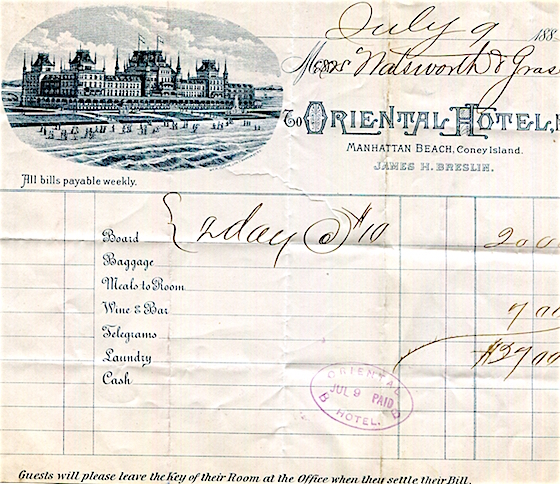 July 9 188
Messrs & Gras
To ORIENTAL HOTEL,
MANHATTAN BEACH, Coney Island.
JAMES H. BRESLIN.
All bills payable weekly.
Board { 2 day @ $10 20 0
Baggage
Meals to Room
Wine & Bar 7 00
Telegrams
Laundry $27 00
Cash
ORIENTAL
JUL 9 PAID
HOTEL.
Guests will please leave the Key of their Room at the Office when they settle their Bill.